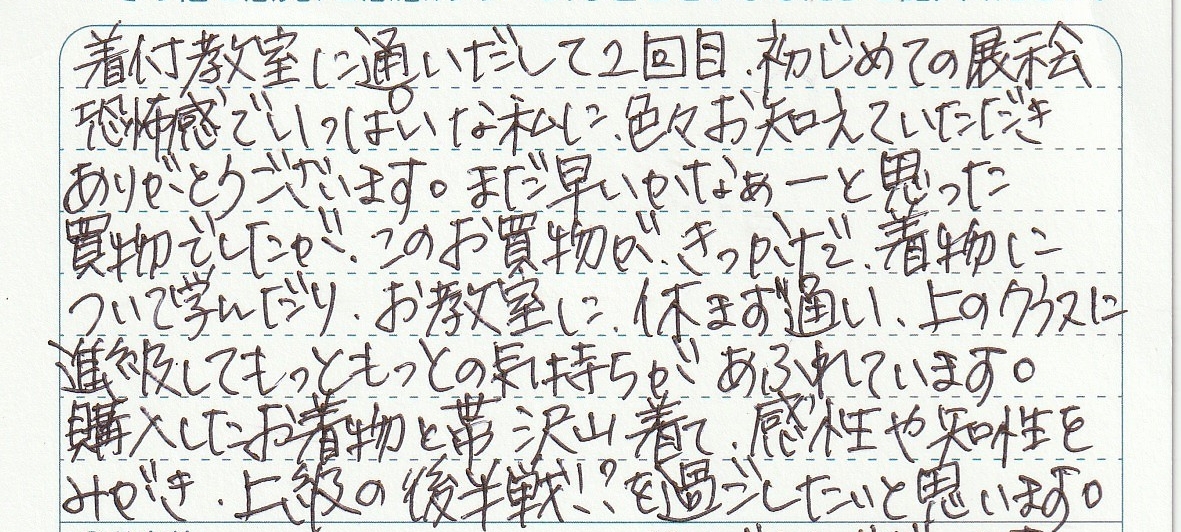 着付教室に通いだして2回目、初じめての展示会
恐怖感でいっぱいな私に、色々お知えていただき
ありがとうございます。まだ早いかなぁーと思った
買物でしたが、このお買物が、きっかけで、着物に
ついて学んだり、お教室に、休まず通い、上のクラスに
進級してもっともっとの気持ちがあふれています。
購入したお着物と帯沢山着て、感性や知性を
みがき、上級の後半戦!?を過ごしたいと思います。